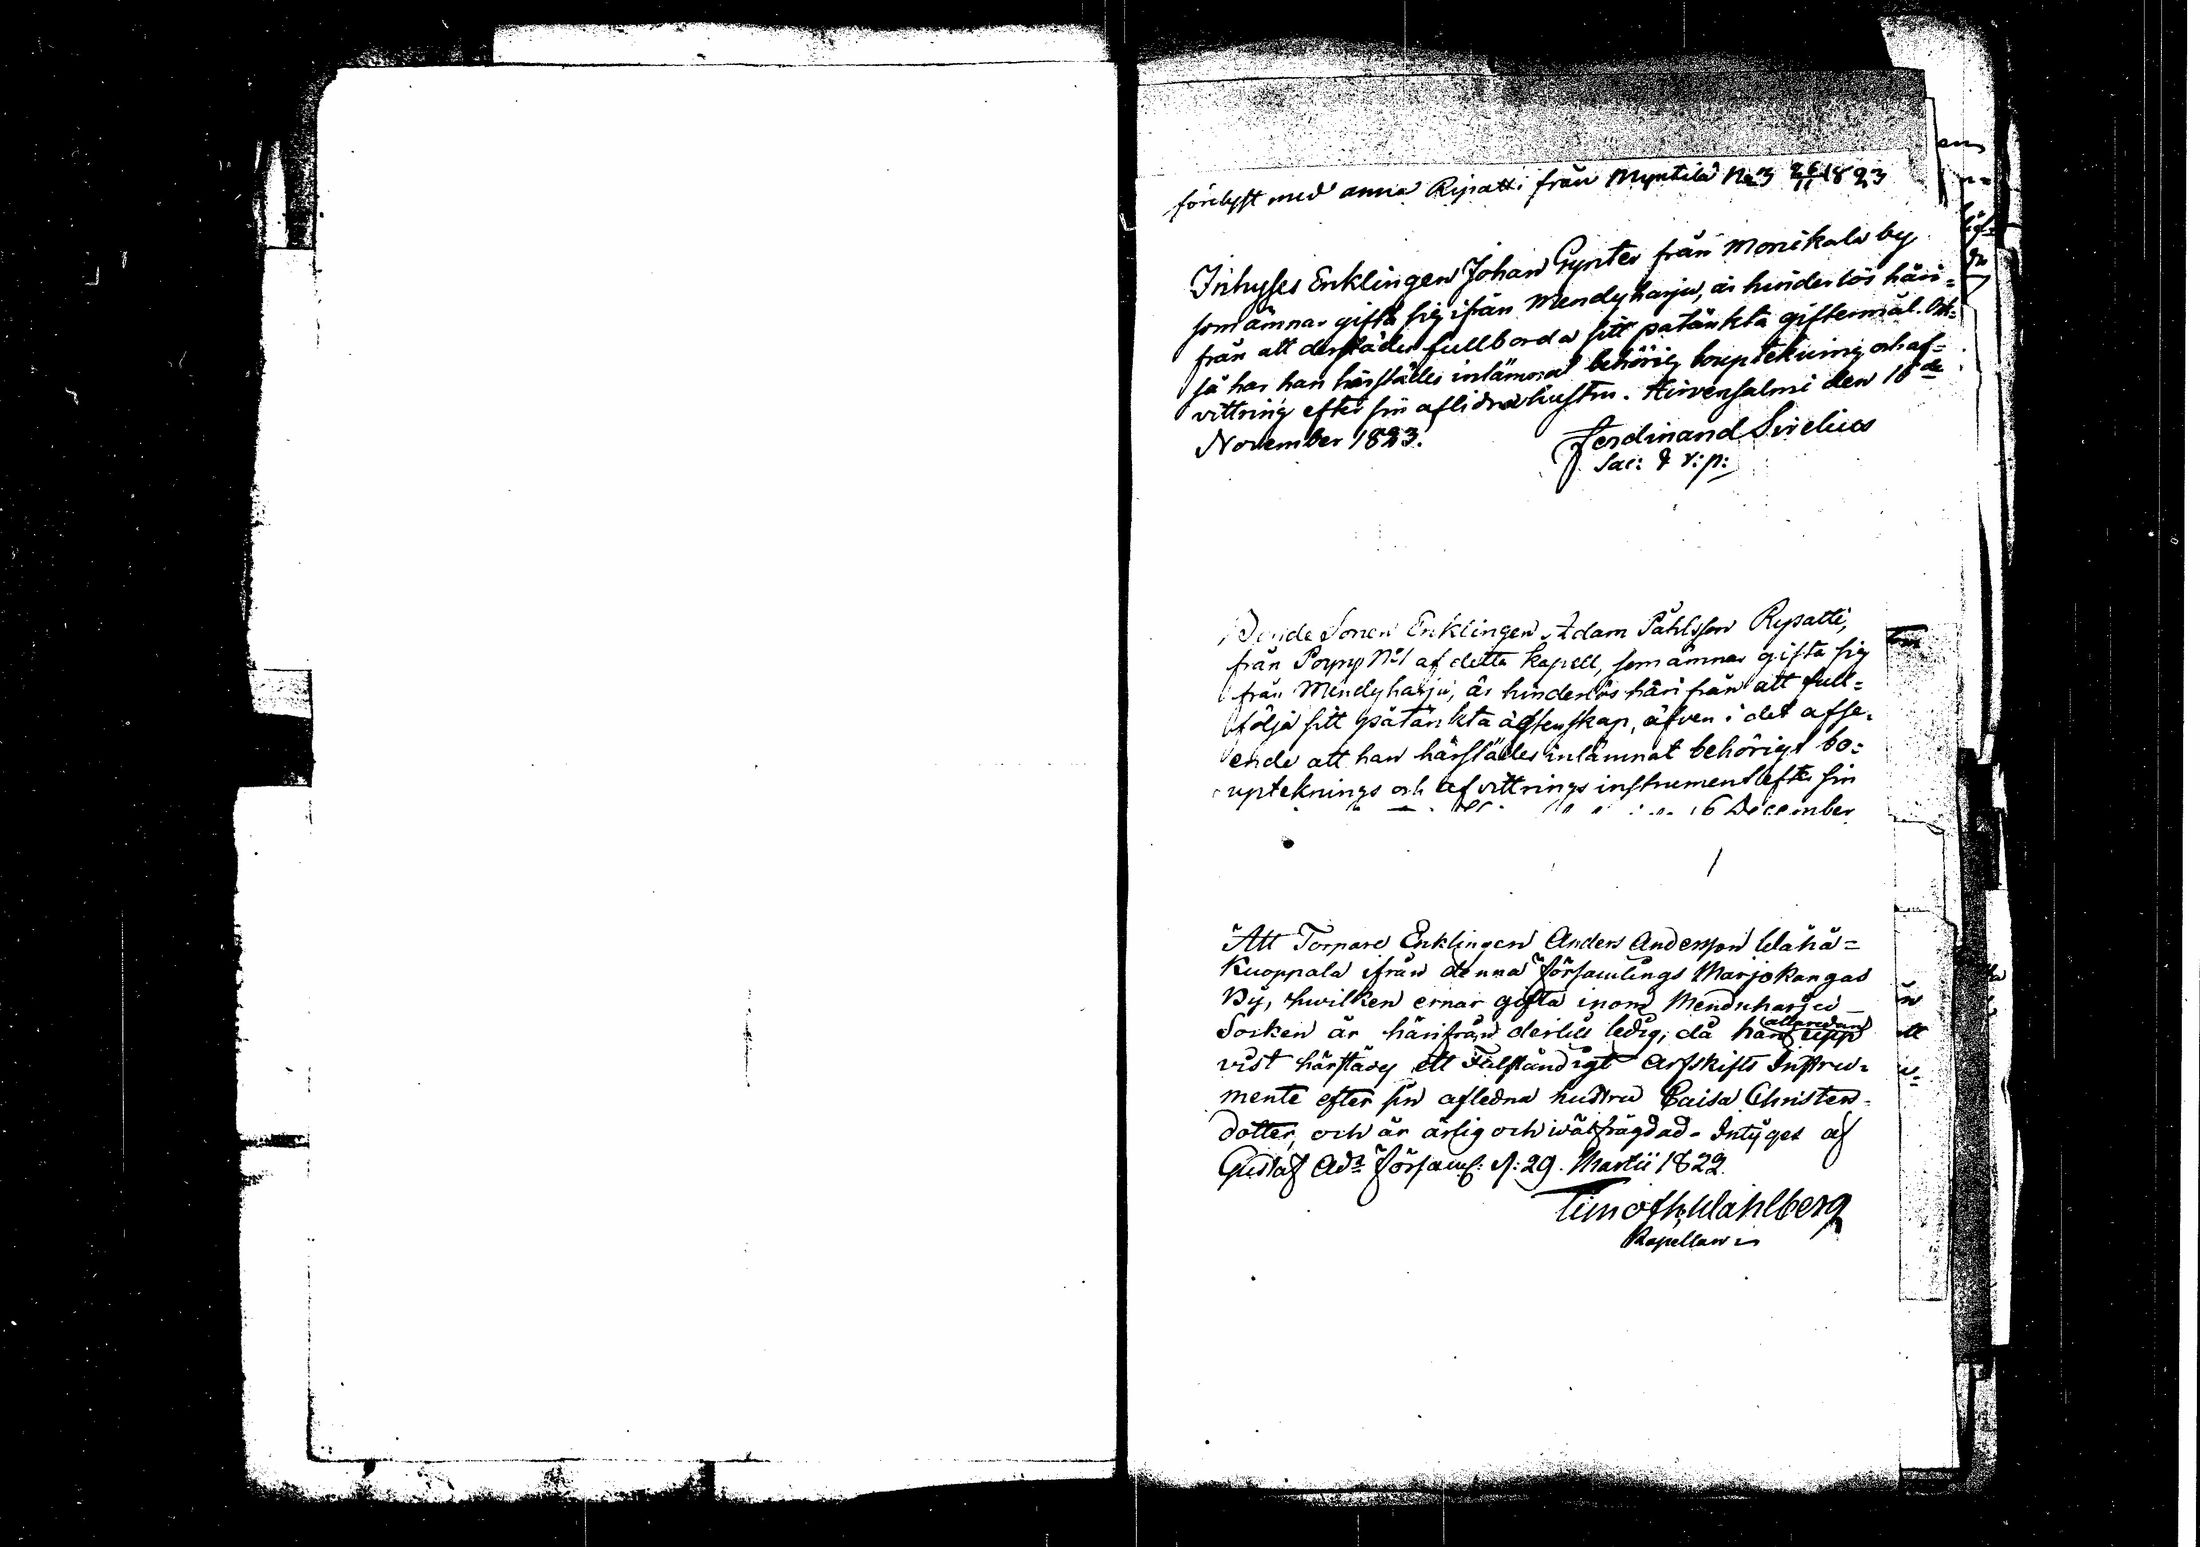 förelyst med Anna Ripatti från Myntilä No 3 26/11 1823
Inhyses Enklingen Johan Gynter från Monikala by
som ämnar gifta sig ifrån Mendyharju, är hinderlös häri-
från att derstädes fullborda sitt påtänkta giftermål. Ock-
så har han härstädes inlämnat behörig bouptekning och af-
vittring efter sin aflidna hustru. Hirvensalmi den 18de
November 1823.
Ferdinand Sirelius
Sac: & v:p:
Bonde Sonen Enklingen Adam Påhlsson Ripatti,
från Poyry No 1 af detta Kapell, som ämnar gifta sig
från Mendyharju, är hinderlös härifrån att full-
följa sitt påtänkta ägtenskap, äfven i det afse-
ende att han härstädes inlämnat behörigt bo-
upteknings och afvittrings instrument efter sin
16 December
Att Torpare Enklingen Anders Andersson Wähä-
Kuoppala ifrån denna Församlings Marjokangas
By, hwilken ernar gifta inom Menduharju
Socken är härifrån dertill ledig, då han allaredan upp
vist härstädes ett Fulständigt Arfskifts Instru-
mente efter sin afledna hustru Caisa Christers-
dotter, och är ärlig och wälfrägdad - Intyget af
Gustaf Ads Församl: d: 29. Martii 1822.
Timoth. Wahlberg
Kapellan